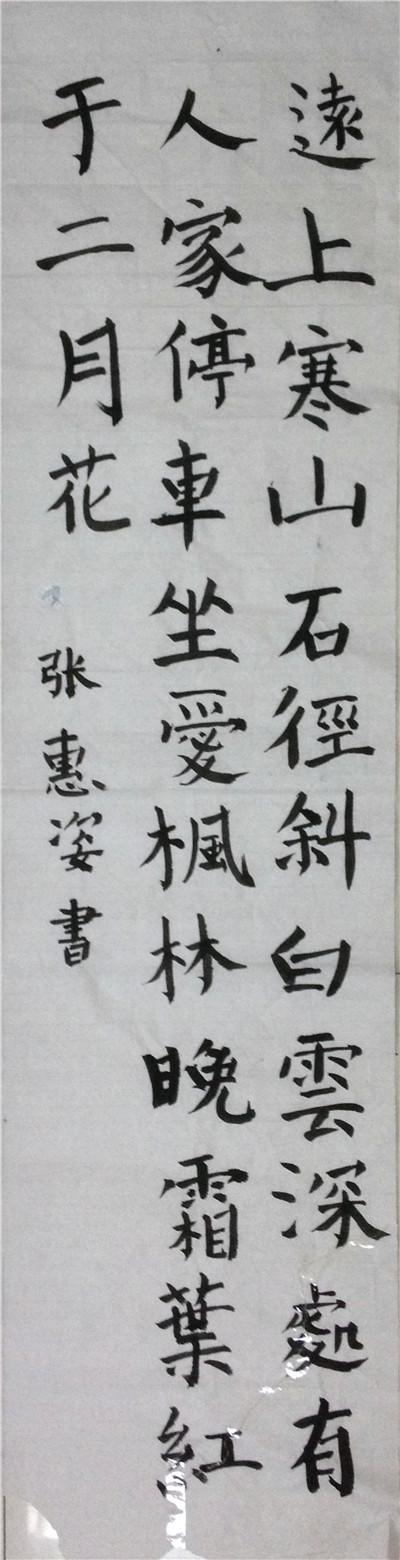 遠上寒山石徑斜白雲深處有
人家停車坐愛楓林晚霜葉紅
于二月花
张惠姿書